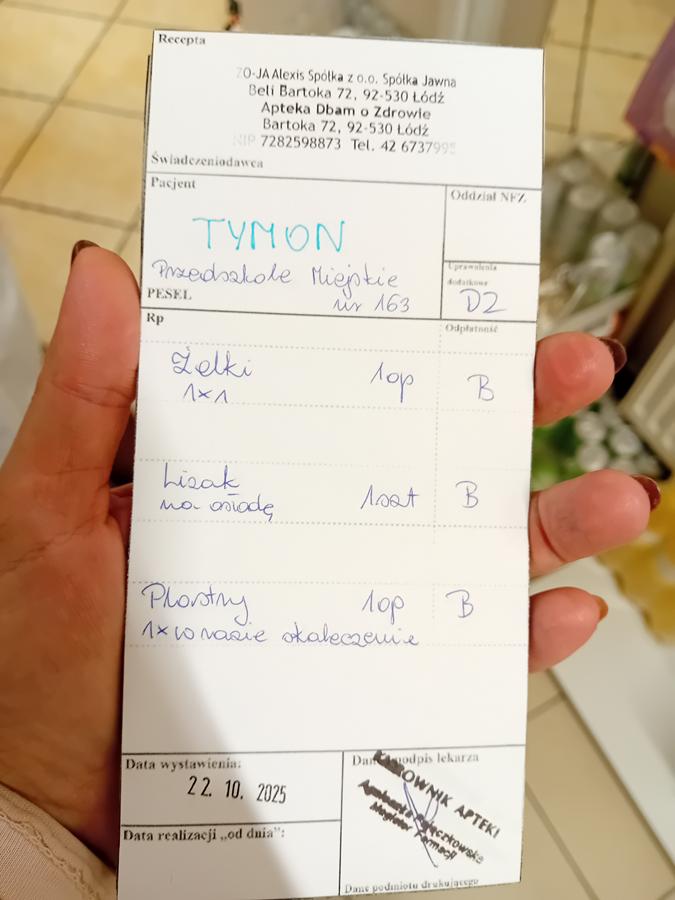 Recepta
ZO-JA Alexis Spółka z o.o. Spółka Jawna
Beli Bartoka 72, 92-530 Łódź
Apteka Dbam o Zdrowie
Bartoka 72, 92-530 Łódź
NIP 7282598873 Tel. 42 6737995
Świadczeniodawca
Pacjent
Oddział NFZ
TYMON
Przedszkole Miejskie
nr 163
PESEL
Uprawnienia
dodatkowe
DZ
Rp
Odpłatność
Żelki 1op B
1x1
Lizak 1szt B
na osłodę
Plastry 1op B
1x w razie skaleczenia
Data wystawienia:
22. 10. 2025
Data realizacji „od dnia”:
podpis lekarza
KIEROWNIK APTEKI
Magister Farmacji
Dane podmiotu drukującego